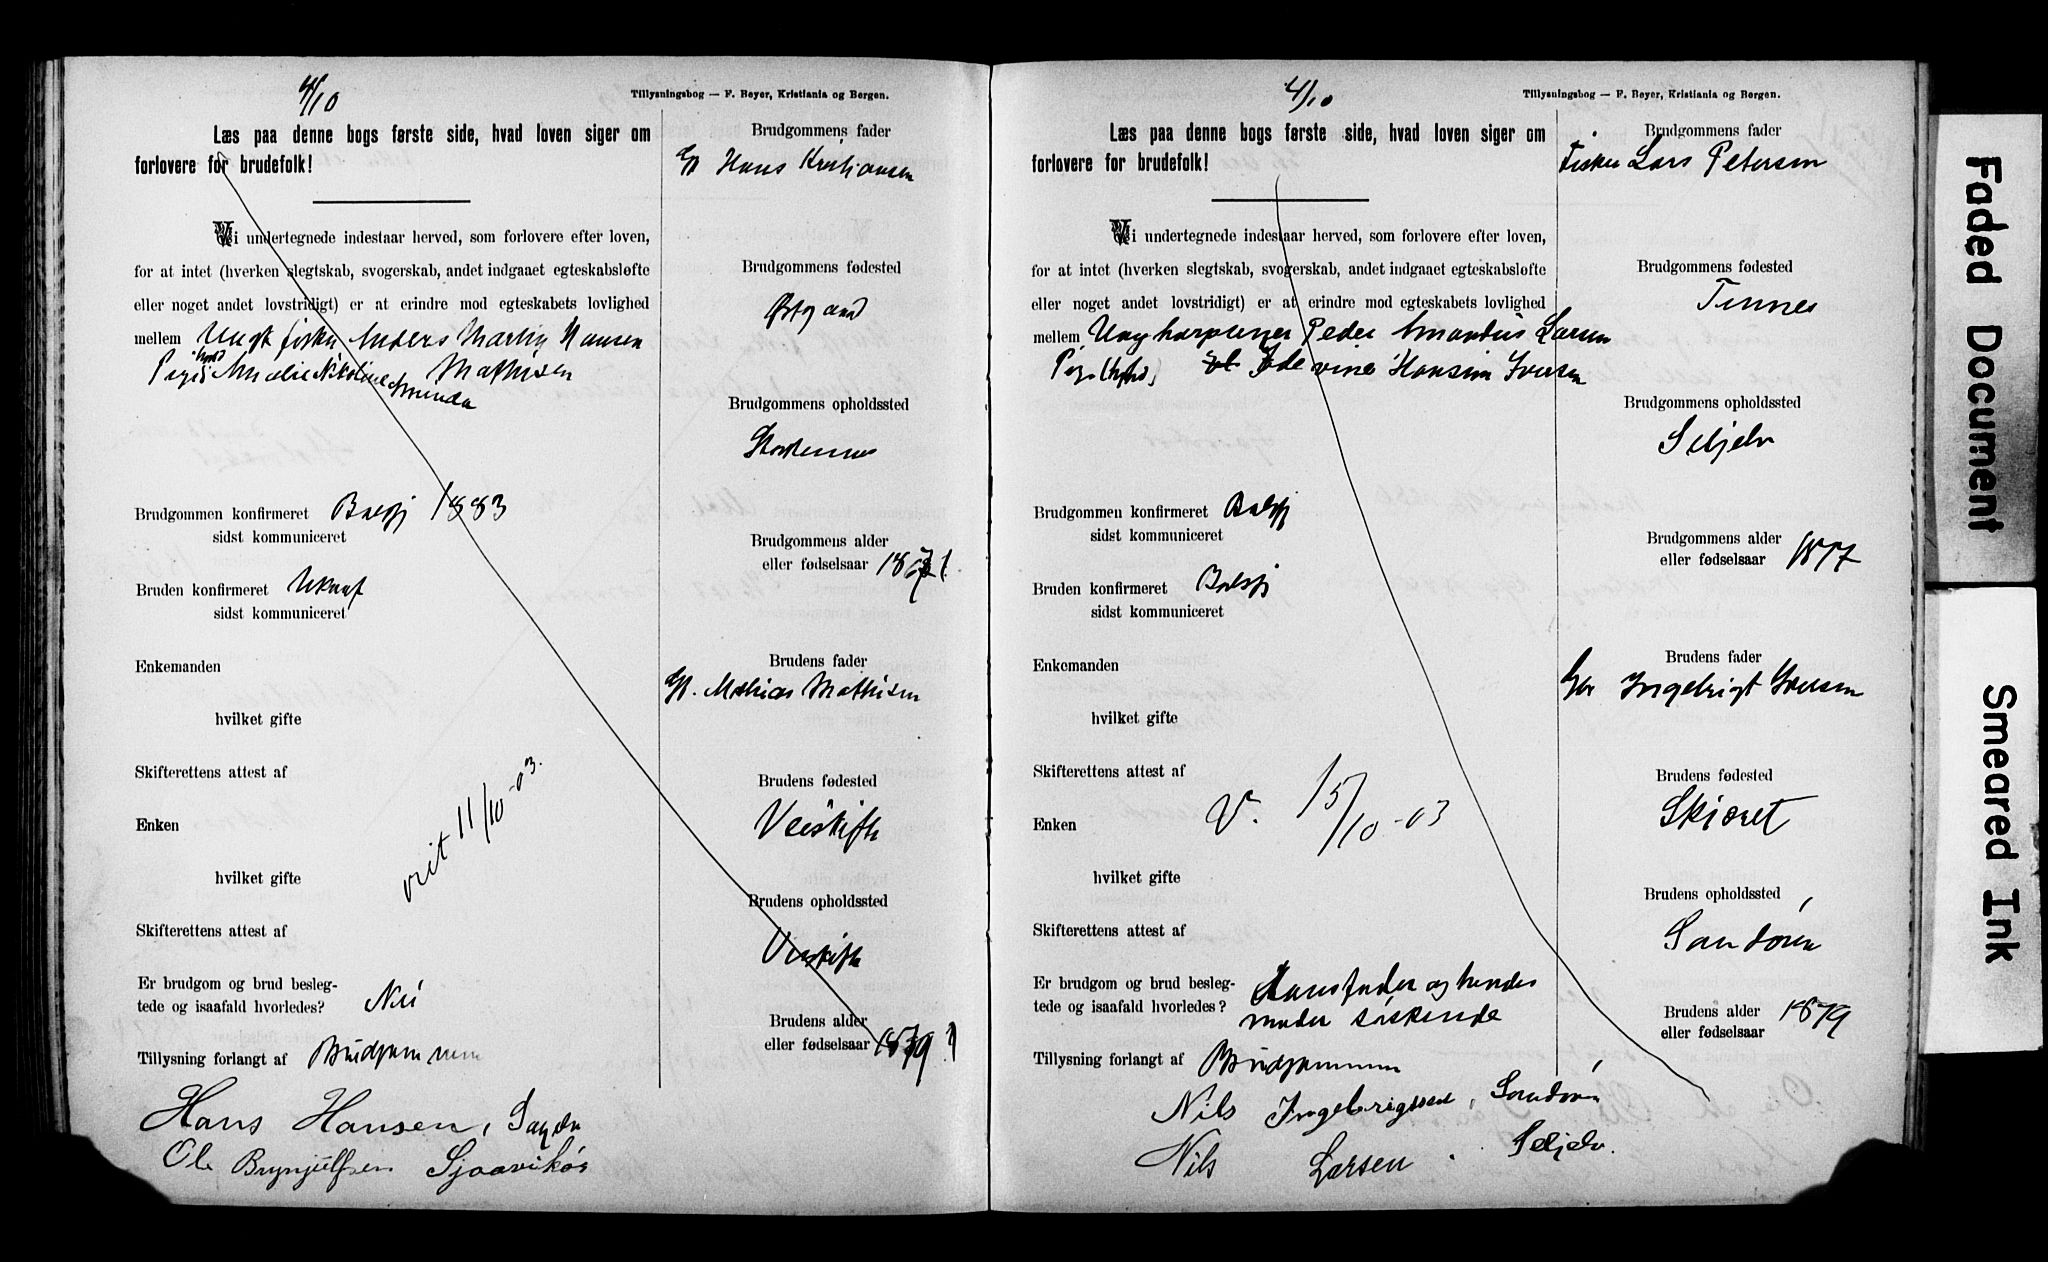 4/10
Tillysningsbog — F. Beyer, Kristiania og Bergen.
Læs paa denne bogs første side, hvad loven siger om
forlovere for brudefolk!
Vi undertegnede indestaar herved, som forlovere efter loven,
for at intet (hverken slegtskab, svogerskab, andet indgaaet egteskabsløfte
eller noget andet lovstridigt) er at erindre mod egteskabets lovlighed
mellem Ungk fisker Anders Martin Hansen
Pige Amalie Nikoline Mathisen
Aminda
Brudgommen konfirmeret Balsfj 1883
sidst kommuniceret
Bruden konfirmeret Ukonf
sidst kommuniceret
Enkemanden
hvilket gifte
Skifterettens attest af
Enken
viet 11/10-03.
hvilket gifte
Skifterettens attest af
Er brudgom og brud besleg-
tede og isaafald hvorledes? Nei
Tillysning forlangt af Brudgommen
Hans Hansen,
Ole Brynjulfsen Sjaavikør
Brudgommens fader
Hans Kristiansen
Brudgommens fødested
Brudgommens opholdssted
Stortennes
Brudgommens alder
eller fødselsaar
Brudens fader
Mathias Mathisen
Brudens fødested
Veiskifte
Brudens opholdssted
Veiskifte
Brudens alder
eller fødselsaar
4/10
Tillysningsbog — F. Beyer, Kristiania og Bergen.
Læs paa denne bogs første side, hvad loven siger om
forlovere for brudefolk!
Vi undertegnede indestaar herved, som forlovere efter loven,
for at intet (hverken slegtskab, svogerskab, andet indgaaet egteskabsløfte
eller noget andet lovstridigt) er at erindre mod egteskabets lovlighed
mellem Ung harpuner Peder Amandus Larsen
Pige Edevine Hansine Iversen
Brudgommen konfirmeret Balsfj
sidst kommuniceret
Bruden konfirmeret Balsfj
sidst kommuniceret
Enkemanden
hvilket gifte
Skifterettens attest af
Enken V. 15/10-03
hvilket gifte
Skifterettens attest af
Er brudgom og brud besleg-
tede og isaafald hvorledes? Hans fader og hendes
moder søskende
Tillysning forlangt af Brudgommen
Nils Ingebrigtsen, Sandøren
Nils Larsen. Seljelv.
Brudgommens fader
Fisker Lars Petersen
Brudgommens fødested
Tennes
Brudgommens opholdssted
Seljelv
Brudgommens alder
eller fødselsaar 1877
Brudens fader
Gbr Ingebrigt Iversen
Brudens fødested
Skjæret
Brudens opholdssted
Sandøren
Brudens alder
eller fødselsaar 1879
Faded Document
Smeared Ink